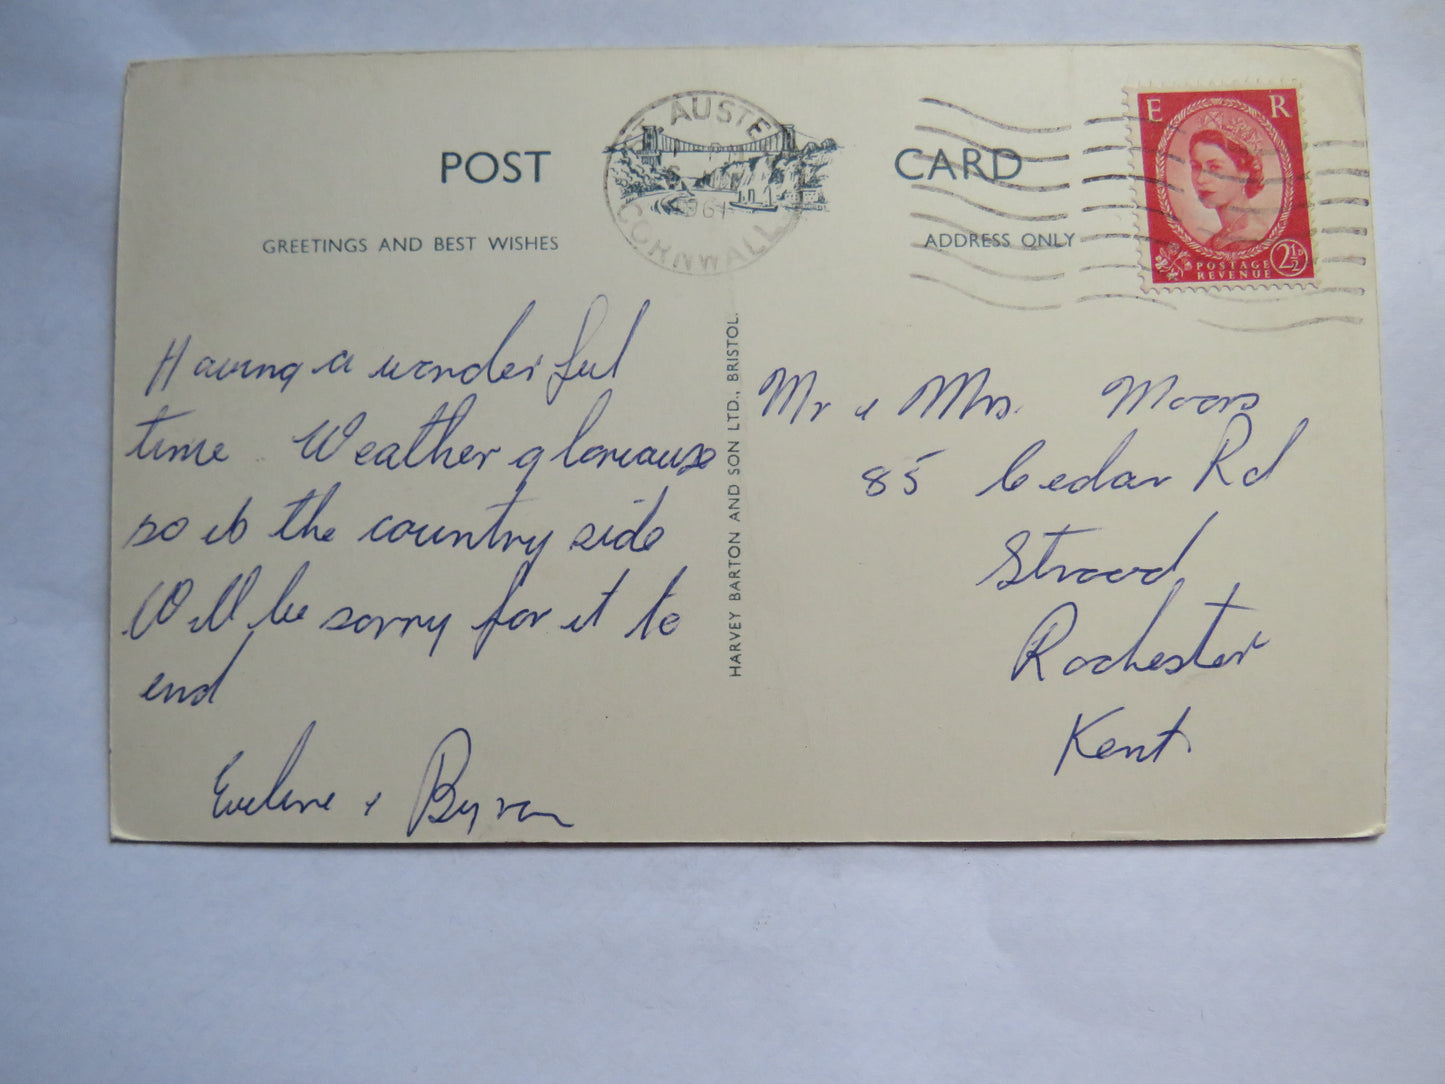 POST CARD
GREETINGS AND BEST WISHES
ADDRESS ONLY
ST AUSTELL
1961
CORNWALL
E R
POSTAGE
REVENUE
2½
Having a wonderful
time. Weather glorious
so is the country side
Will be sorry for it to
end
Eveline & Byron
HARVEY BARTON AND SON LTD., BRISTOL.
Mr & Mrs. Moors
85 Cedar Rd
Strood
Rochester
Kent.